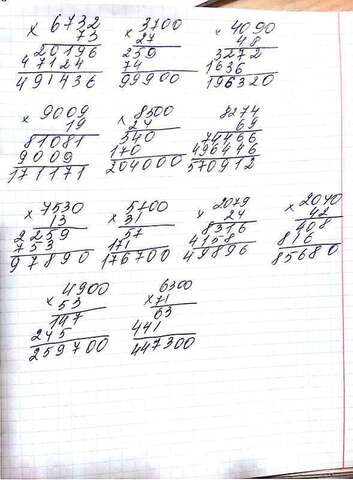 × 6732 × 3700 × 4090
73 27 48
20196 259 3272
47124 74 1636
491436 99900 196320
× 9009 × 8500 8274
19 24 69
81081 340 74466
9009 170 496446
171171 204000 570912
× 7530 × 5700 × 2079 × 2040
13 31 24 42
2259 57 8316 408
753 171 4158 816
97890 176700 49896 85680
× 4900 6300
53 ×71
147 63
245 441
259700 447300